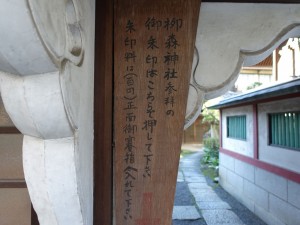 柳森神社参拝の
御朱印はこちらで押して下さい
朱印料は(百円)正面御賽銭箱へ入れて下さい